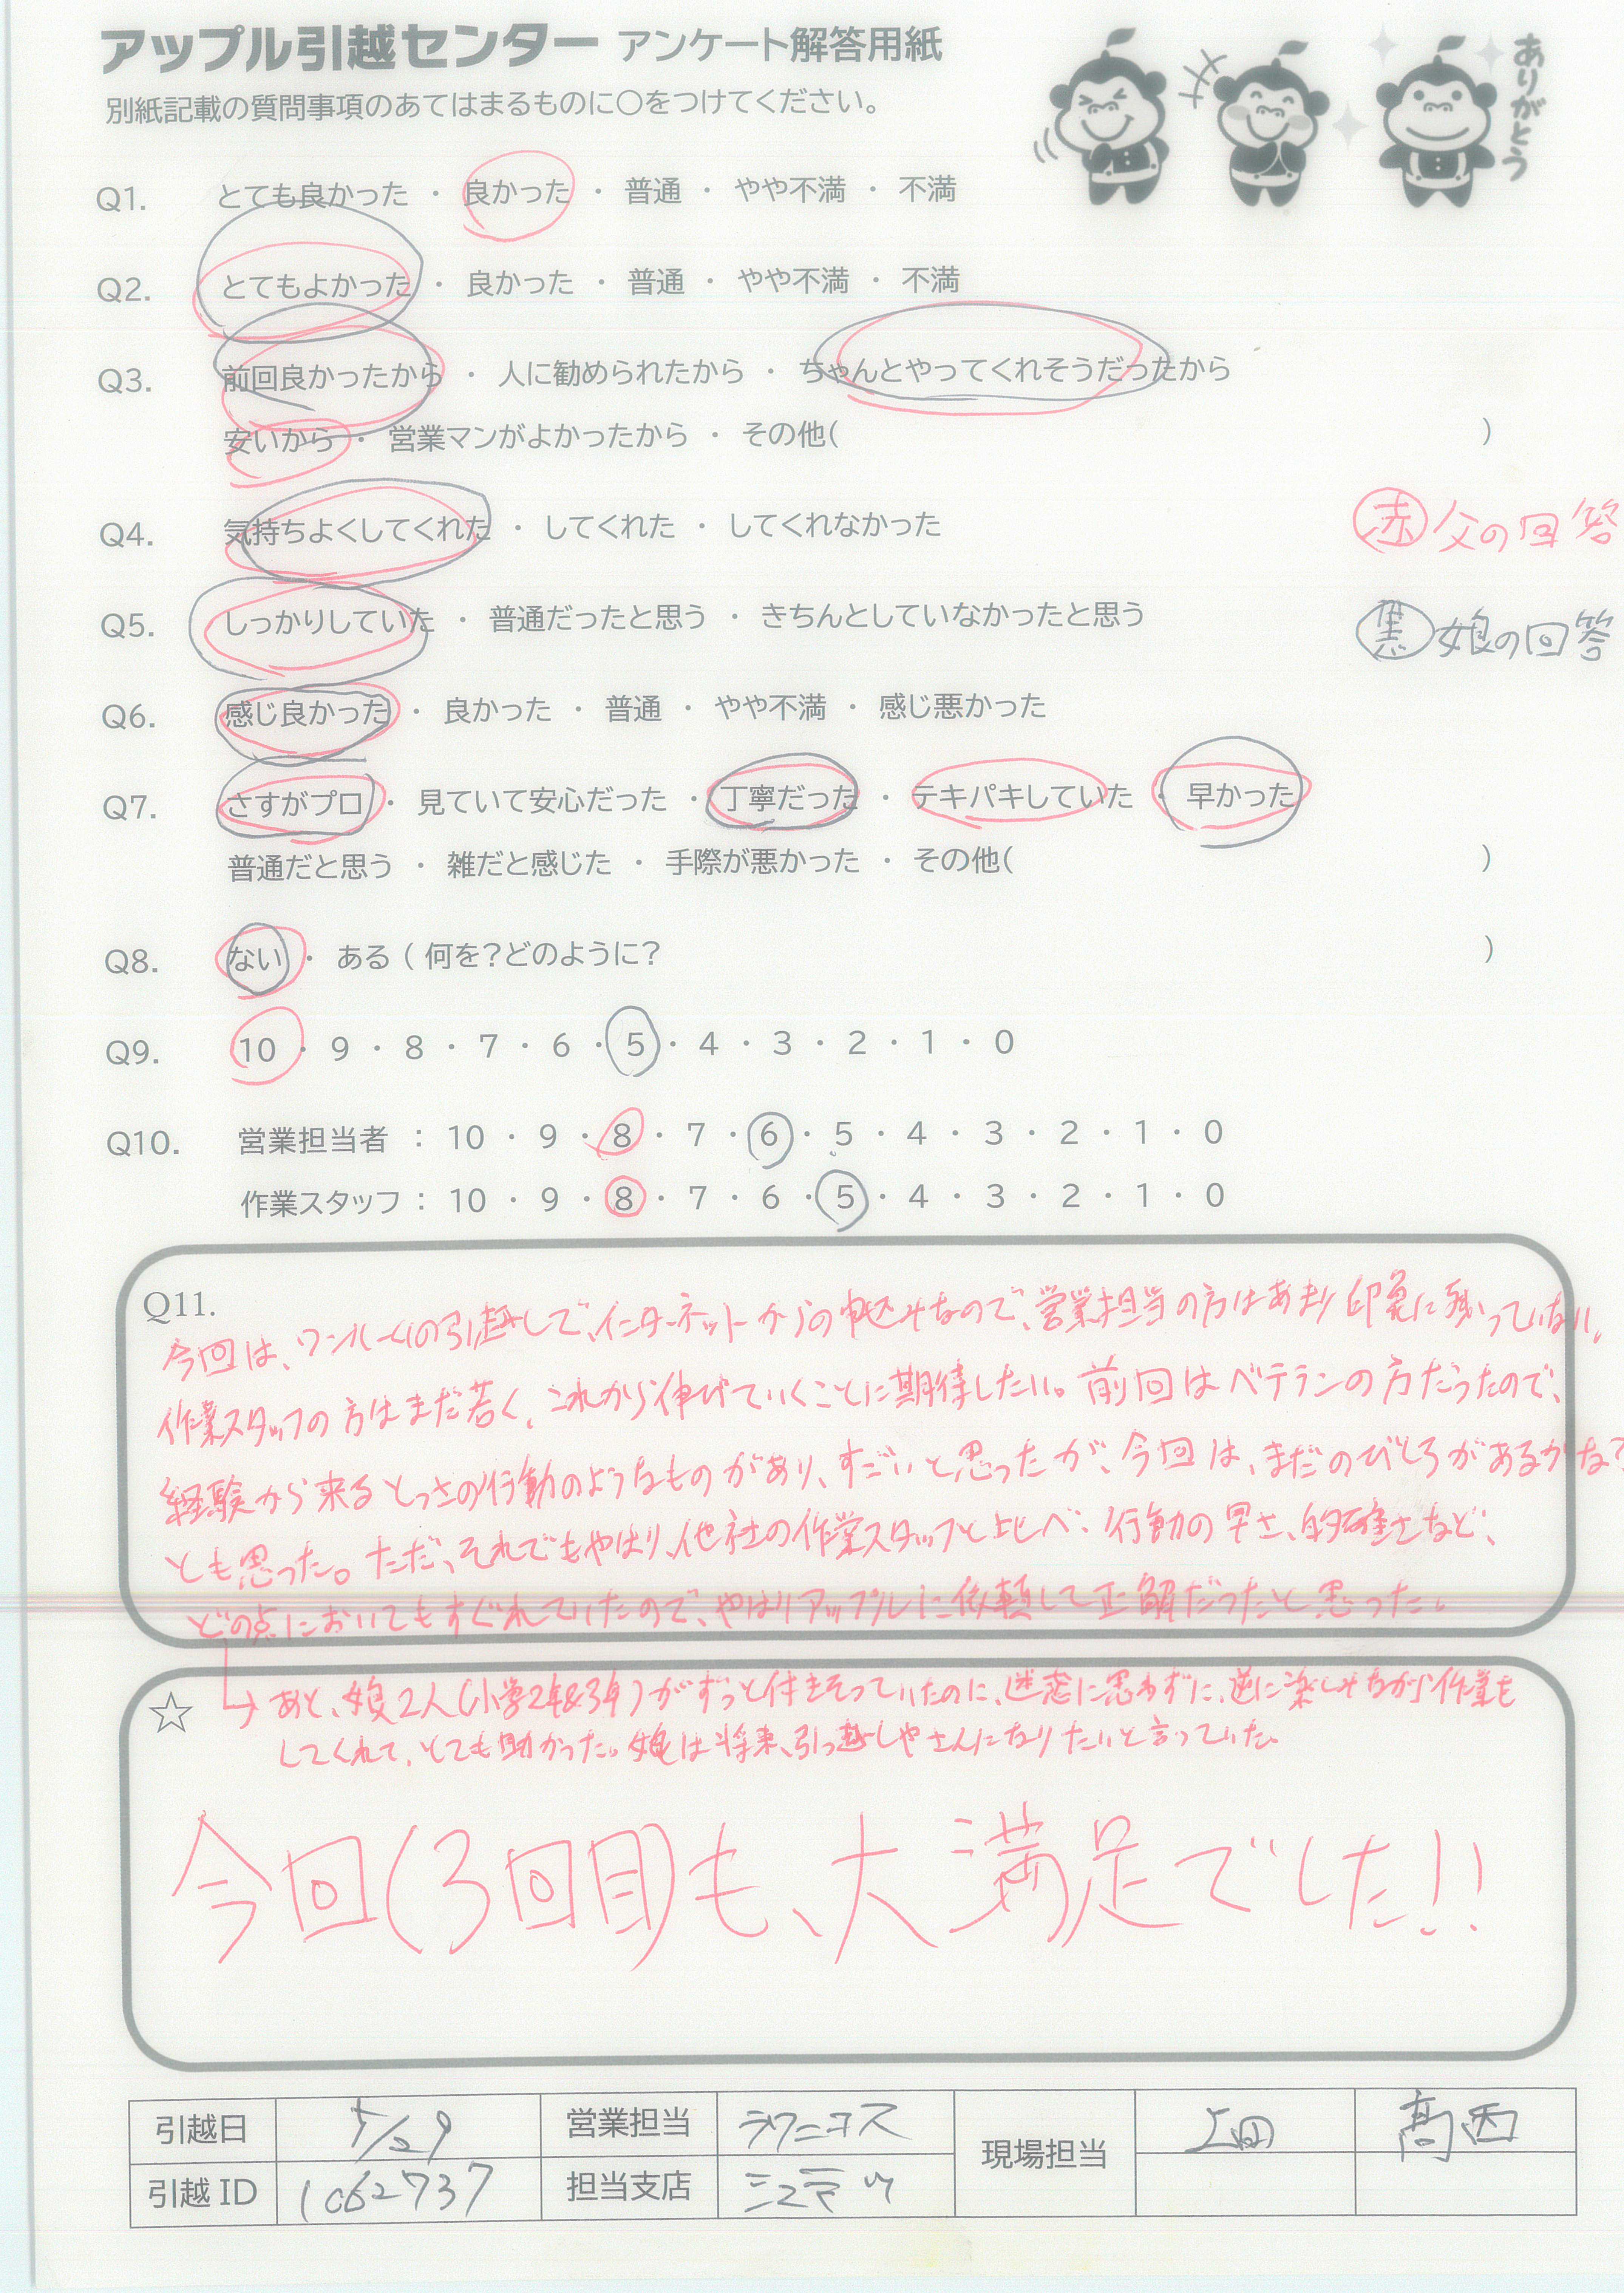 アップル引越センター アンケート解答用紙
別紙記載の質問事項のあてはまるものに〇をつけてください。
ありがとう
Q1. とても良かった ・ 良かった ・ 普通 ・ やや不満 ・ 不満
Q2. とてもよかった ・ 良かった ・ 普通 ・ やや不満 ・ 不満
Q3. 前回良かったから ・ 人に勧められたから ・ ちゃんとやってくれそうだったから
安いから ・ 営業マンがよかったから ・ その他( )
Q4. 気持ちよくしてくれた ・ してくれた ・ してくれなかった
赤 父の回答
Q5. しっかりしていた ・ 普通だったと思う ・ きちんとしていなかったと思う
黒 娘の回答
Q6. 感じ良かった ・ 良かった ・ 普通 ・ やや不満 ・ 感じ悪かった
Q7. さすがプロ ・ 見ていて安心だった ・ 丁寧だった ・ テキパキしていた ・ 早かった
普通だと思う ・ 雑だと感じた ・ 手際が悪かった ・ その他( )
Q8. ない ・ ある ( 何を?どのように? )
Q9. 10 ・ 9 ・ 8 ・ 7 ・ 6 ・ 5 ・ 4 ・ 3 ・ 2 ・ 1 ・ 0
Q10. 営業担当者 : 10 ・ 9 ・ 8 ・ 7 ・ 6 ・ 5 ・ 4 ・ 3 ・ 2 ・ 1 ・ 0
作業スタッフ : 10 ・ 9 ・ 8 ・ 7 ・ 6 ・ 5 ・ 4 ・ 3 ・ 2 ・ 1 ・ 0
Q11.
今回は、ワンルームの引越しで、インターネットからの申込みなので、営業担当の方はあまり印象に残っていない。
作業スタッフの方はまだ若く、これから伸びていくことに期待したい。前回はベテランの方だったので、
経験から来るとっさの行動のようなものがあり、すごいと思ったが、今回は、まだのびしろがあるかな?
とも思った。ただ、それでもやはり、他社の作業スタッフと比べ、行動の早さ、的確さなど、
どの点においてもすぐれていたので、やはりアップルに依頼して正解だったと思った。
☆ → あと、娘2人(小学2年&3年)がずっと付きそっていたのに、迷惑に思わずに、逆に楽しみながら作業も
してくれて、とても助かった。娘は将来、引っ越しやさんになりたいと言っていた。
今回(3回目)も、大満足でした!!
引越日 5/29 営業担当 現場担当 上田 髙西
引越 ID 1062737 担当支店